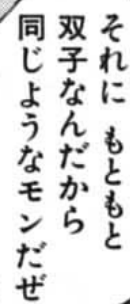 それに もともと
双子なんだから
同じようなモンだぜ